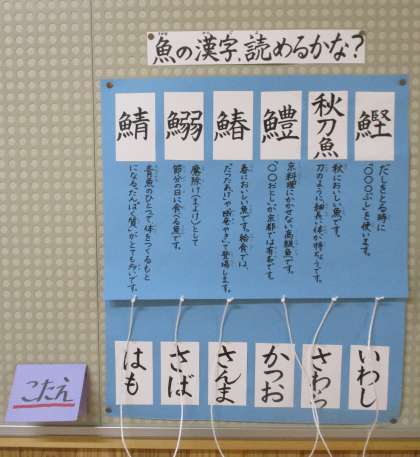 魚の漢字、読めるかな?
鰹
だしをとる時に
「○○○ぶし」を使います。
秋刀魚
秋においしい魚です。
刀のように細長い体が特ちょうです。
鱧
京料理にかかせない高級魚です。
「○○おとし」が京都では有名です。
鰆
春がおいしい魚です。給食では、
「たつたあげ」や「西京やき」で登場します。
鰯
魔除け(まよけ)として
節分の日に食べる魚です。
鯖
青魚のひとつで、体をつくるもと
になる「たんぱく質」がとても多いです。
いわし
さわら
かつお
さんま
さば
はも
こたえ